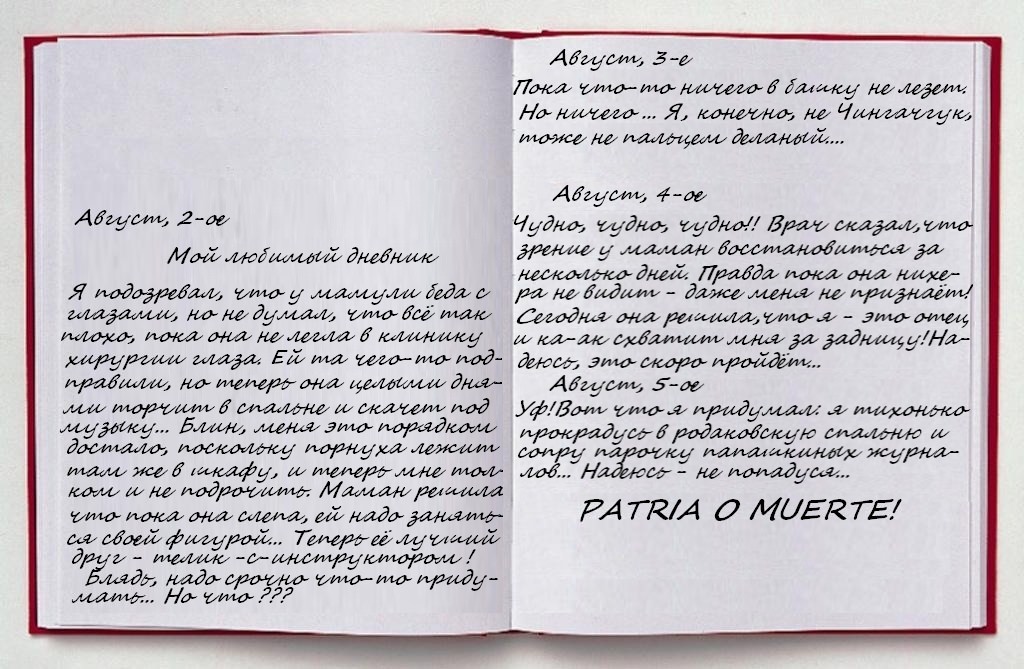 Август, 2-ое
Мой любимый дневник
Я подозревал, что у мамули беда с
глазами, но не думал, что всё так
плохо, пока она не легла в клинику
хирургии глаза. Ей та чего-то под-
правили, но теперь она целыми дня-
ми торчит в спальне и скачет под
музыку... Блин, меня это порядком
достало, поскольку порнуха лежит
там же в шкафу, и теперь мне тол-
ком и не подрочить. Маман решила
что пока она слепа, ей надо занять-
ся своей фигурой... Теперь её лучший
друг - телик -с-инструктором !
Блядь, надо срочно что-то приду-
мать... Но что ???
Август, 3-е
Пока что-то ничего в башку не лезет.
Но ничего ... Я, конечно, не Чингачгук,
тоже не пальцем деланый....
Август, 4-ое
Чудно, чудно, чудно!! Врач сказал,что
зрение у маман восстановиться за
несколько дней. Правда пока она нихе-
ра не видит - даже меня не признаёт!
Сегодня она решила,что я - это отец
и ка-ак схватит мня за задницу!На-
деюсь, это скоро пройдёт...
Август, 5-ое
Уф!Вот что я придумал: я тихонько
прокрадусь в родаковскую спальню и
сопру парочку папашкиных журна-
лов... Надеюсь - не попадуся...
PATRIA O MUERTE!